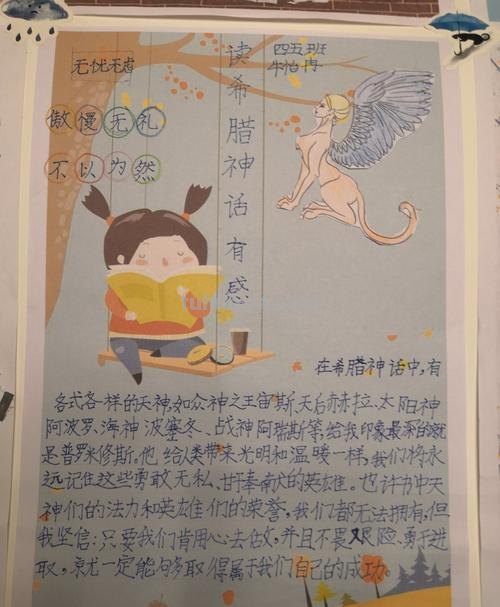 无忧无虑
傲慢无礼
不以为然
读希腊神话有感
四五班
牛怡冉
在希腊神话中,有
各式各样的天神,如众神之王宙斯、天后赫拉、太阳神
阿波罗、海神波塞冬、战神阿瑞斯等,给我印象最深的就
是普罗米修斯。他给人类带来光明和温暖一样,我们将永
远记住这些勇敢无私、甘于奉献的英雄。也许书中天
神们的法力和英雄们的荣誉,我们都无法拥有,但
我坚信:只要我们肯用心去做,并且不畏艰险、勇于进
取,就一定能够取得属于我们自己的成功。